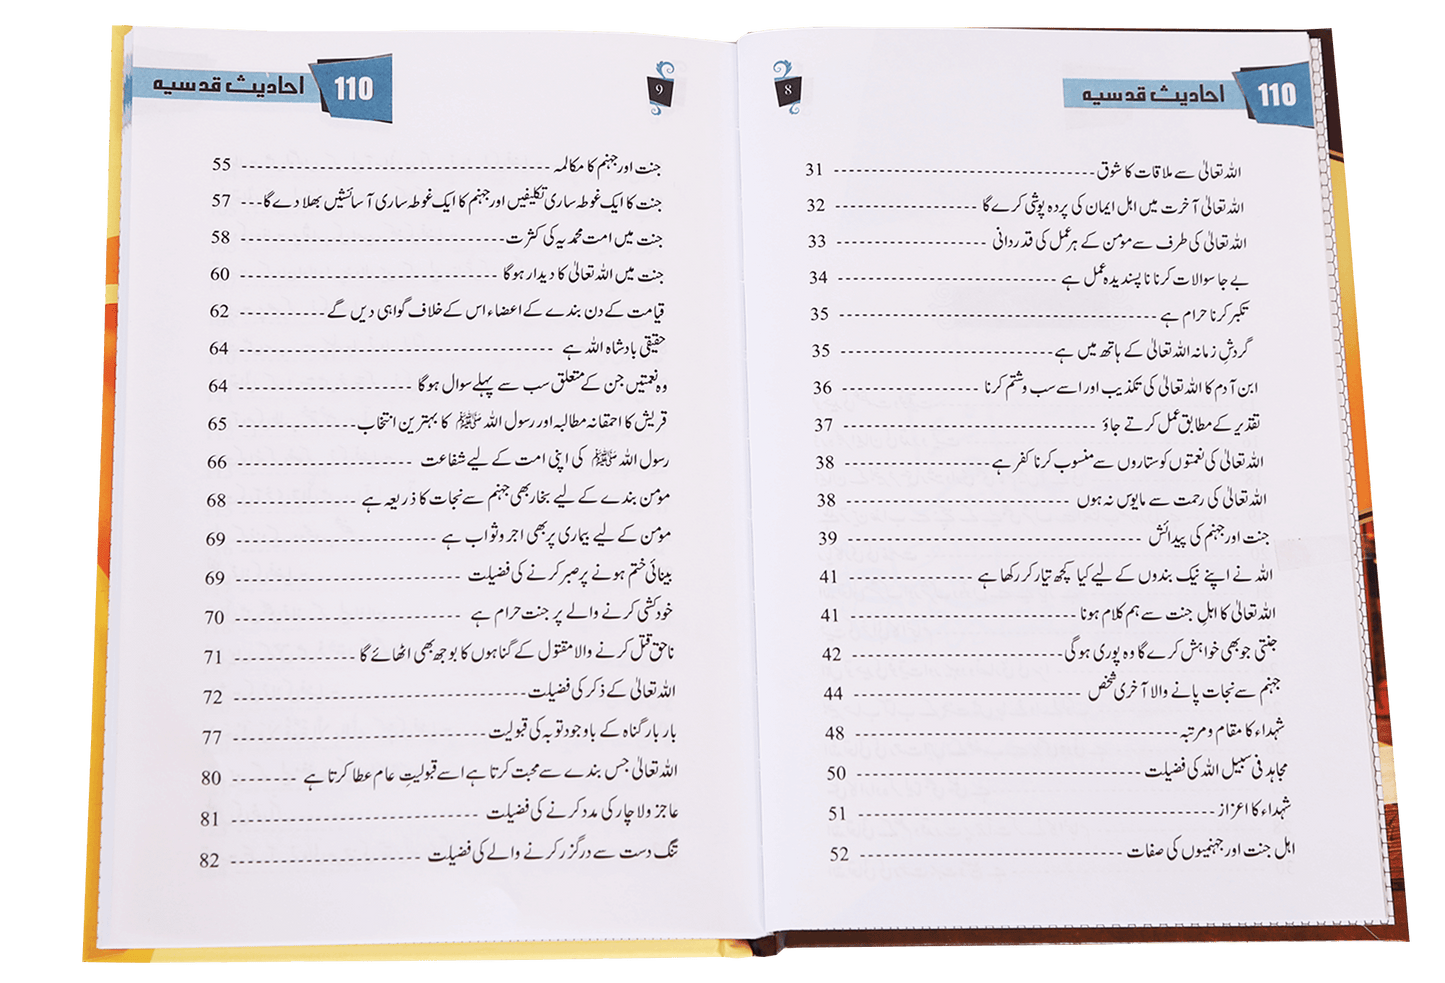 110 احادیث قدسیہ
8
اللہ تعالیٰ سے ملاقات کا شوق ---------- 31
اللہ تعالیٰ آخرت میں اہل ایمان کی پردہ پوشی کرے گا ---------- 32
اللہ تعالیٰ کی طرف سے مومن کے ہر عمل کی قدردانی ---------- 33
بے جا سوالات کرنا ناپسندیدہ عمل ہے ---------- 34
تکبر کرنا حرام ہے ---------- 35
گردشِ زمانہ اللہ تعالیٰ کے ہاتھ میں ہے ---------- 35
ابن آدم کا اللہ تعالیٰ کی تکذیب اور اسے سب و شتم کرنا ---------- 36
تقدیر کے مطابق عمل کرتے جاؤ ---------- 37
اللہ تعالیٰ کی نعمتوں کو ستاروں سے منسوب کرنا کفر ہے ---------- 38
اللہ تعالیٰ کی رحمت سے مایوس نہ ہوں ---------- 38
جنت اور جہنم کی پیدائش ---------- 39
اللہ نے اپنے نیک بندوں کے لیے کیا کچھ تیار کر رکھا ہے ---------- 41
اللہ تعالیٰ کا اہلِ جنت سے ہم کلام ہونا ---------- 41
جنتی جو بھی خواہش کرے گا وہ پوری ہوگی ---------- 42
جہنم سے نجات پانے والا آخری شخص ---------- 44
شہداء کا مقام و مرتبہ ---------- 48
مجاہد فی سبیل اللہ کی فضیلت ---------- 50
شہداء کا اعزاز ---------- 51
اہل جنت اور جہنمیوں کی صفات ---------- 52
110 احادیث قدسیہ
9
جنت اور جہنم کا مکالمہ ---------- 55
جنت کا ایک غوطہ ساری تکلیفیں اور جہنم کا ایک غوطہ ساری آسائشیں بھلا دے گا --- 57
جنت میں امت محمدیہ کی کثرت ---------- 58
جنت میں اللہ تعالیٰ کا دیدار ہوگا ---------- 60
قیامت کے دن بندے کے اعضاء اس کے خلاف گواہی دیں گے ---------- 62
حقیقی بادشاہ اللہ ہے ---------- 64
وہ نعمتیں جن کے متعلق سب سے پہلے سوال ہوگا ---------- 64
قریش کا احمقانہ مطالبہ اور رسول اللہ ﷺ کا بہترین انتخاب ---------- 65
رسول اللہ ﷺ کی اپنی امت کے لیے شفاعت ---------- 66
مومن بندے کے لیے بخار بھی جہنم سے نجات کا ذریعہ ہے ---------- 68
مومن کے لیے بیماری پر بھی اجر و ثواب ہے ---------- 69
بینائی ختم ہونے پر صبر کرنے کی فضیلت ---------- 69
خودکشی کرنے والے پر جنت حرام ہے ---------- 70
ناحق قتل کرنے والا مقتول کے گناہوں کا بوجھ بھی اٹھائے گا ---------- 71
اللہ تعالیٰ کے ذکر کی فضیلت ---------- 72
بار بار گناہ کے باوجود توبہ کی قبولیت ---------- 77
اللہ تعالیٰ جس بندے سے محبت کرتا ہے اسے قبولیتِ عام عطا کرتا ہے ---------- 80
عاجز و لاچار کی مدد کرنے کی فضیلت ---------- 81
تنگ دست سے درگزر کرنے والے کی فضیلت ---------- 82